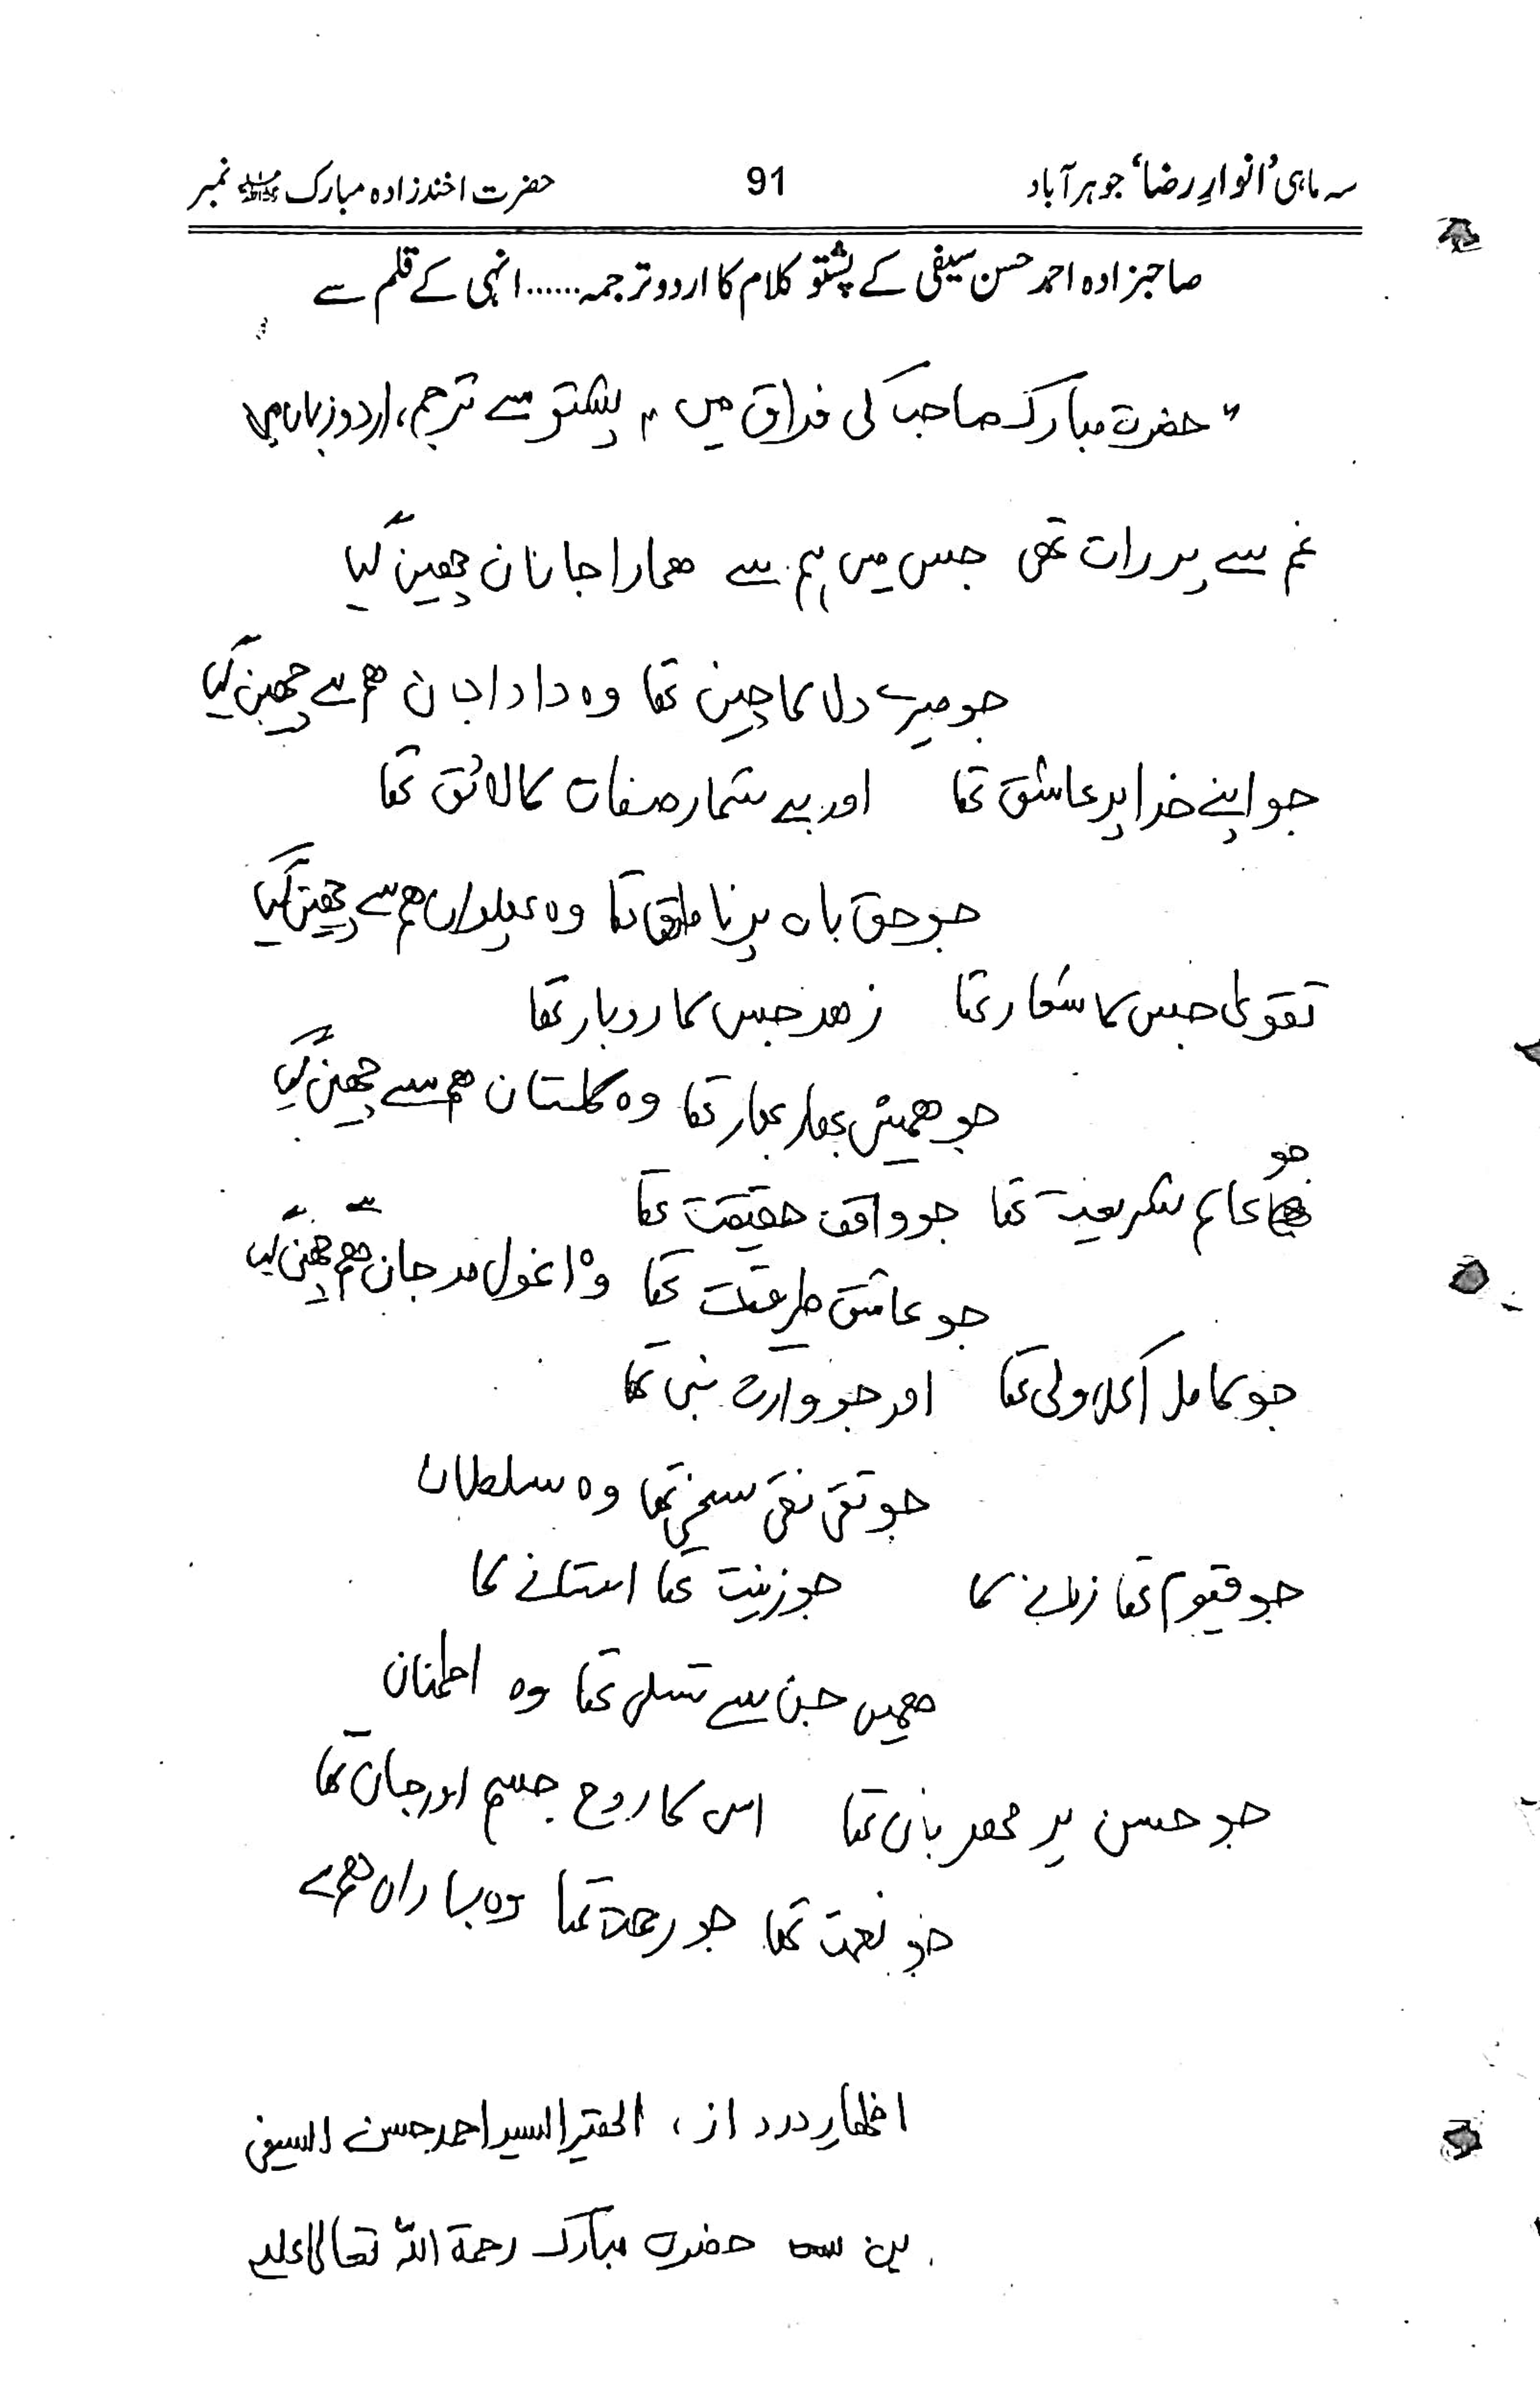 سہ ماہی ’انوارِ رضا‘ جوہر آباد 91 حضرت اخندزادہ مبارک نمبر
صاحبزادہ احمد حسن سیفی کے پشتو کلام کا اردو ترجمہ......انہی کے قلم سے
"حضرت مبارک صاحب کی فراق میں" پشتو سے ترجم، اردو زبان
غم سے پر رات تھی جس میں ہم سے ھمارا جانان چھین گیا
جو میرے دل کا چین تھا وہ دادا جان ھم سے چھین گیا
جو اپنے خدا پر عاشق تھا اور بے شمار صفات کا لائق تھا
جو حق بات پر ناطق تھا وہ ھم سے چھین گیا
تقویٰ جس کا شعار تھا زھد جس کا روبار تھا
جو ھمیش بھار بھار تھا وہ گلستان ھم سے چھین گیا
جو عالم شریعت تھا جو واقف حقیقت تھا
جو عاشق طریقت تھا وہ مرجان ھم سے چھین گیا
جو کامل اکمل ولی تھا اور جو وارث نبی تھا
جو تقی نقی سخی تھا وہ سلطان
جو قیوم تھا زمانے کا جو زینت تھا استانے کا
ھمیں جن سے تسلی تھا وہ اطمنان
جو حسن پر مھربان تھا اس کا روح جسم اور جان تھا
جو نعمت تھا جو رحمت تھا وہ ھم سے
اظھارِ درد از، الحقیر السید احمد حسن السیفی
حضرت مبارک رحمۃ اللہ تعالیٰ علیہ